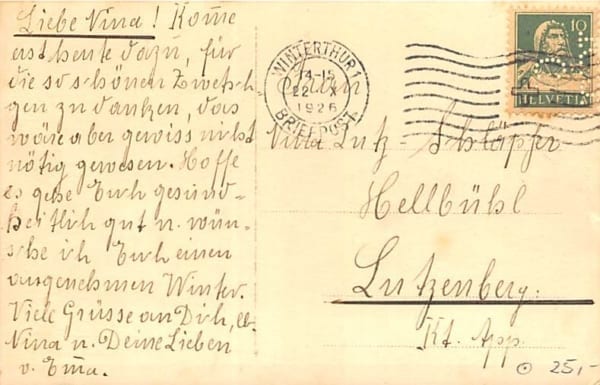 Liebe Nina! Kom̅e
erst heute dazu, für
die so schönen Zwetsch-
gen zu danken, das
wäre aber gewiss nicht
nötig gewesen. Hoffe
es gehe Euch gesund-
heitlich gut u. wün-
sche ich Euch einen
angenehmen Winter.
Viele Grüsse an Dich, lb.
Nina u. Deine Lieben
v. Em̅a.
WINTERTHUR 1
14-15
22. X
1926
BRIEFPOST
10
HELVETIA
Lutz-Schläpfer
Hellbühl
Lutzenberg.
Kt. App.
25,-